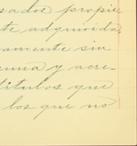 sador propie
te adquirida
ramente sin
runa y acre-
titulos que
los que no